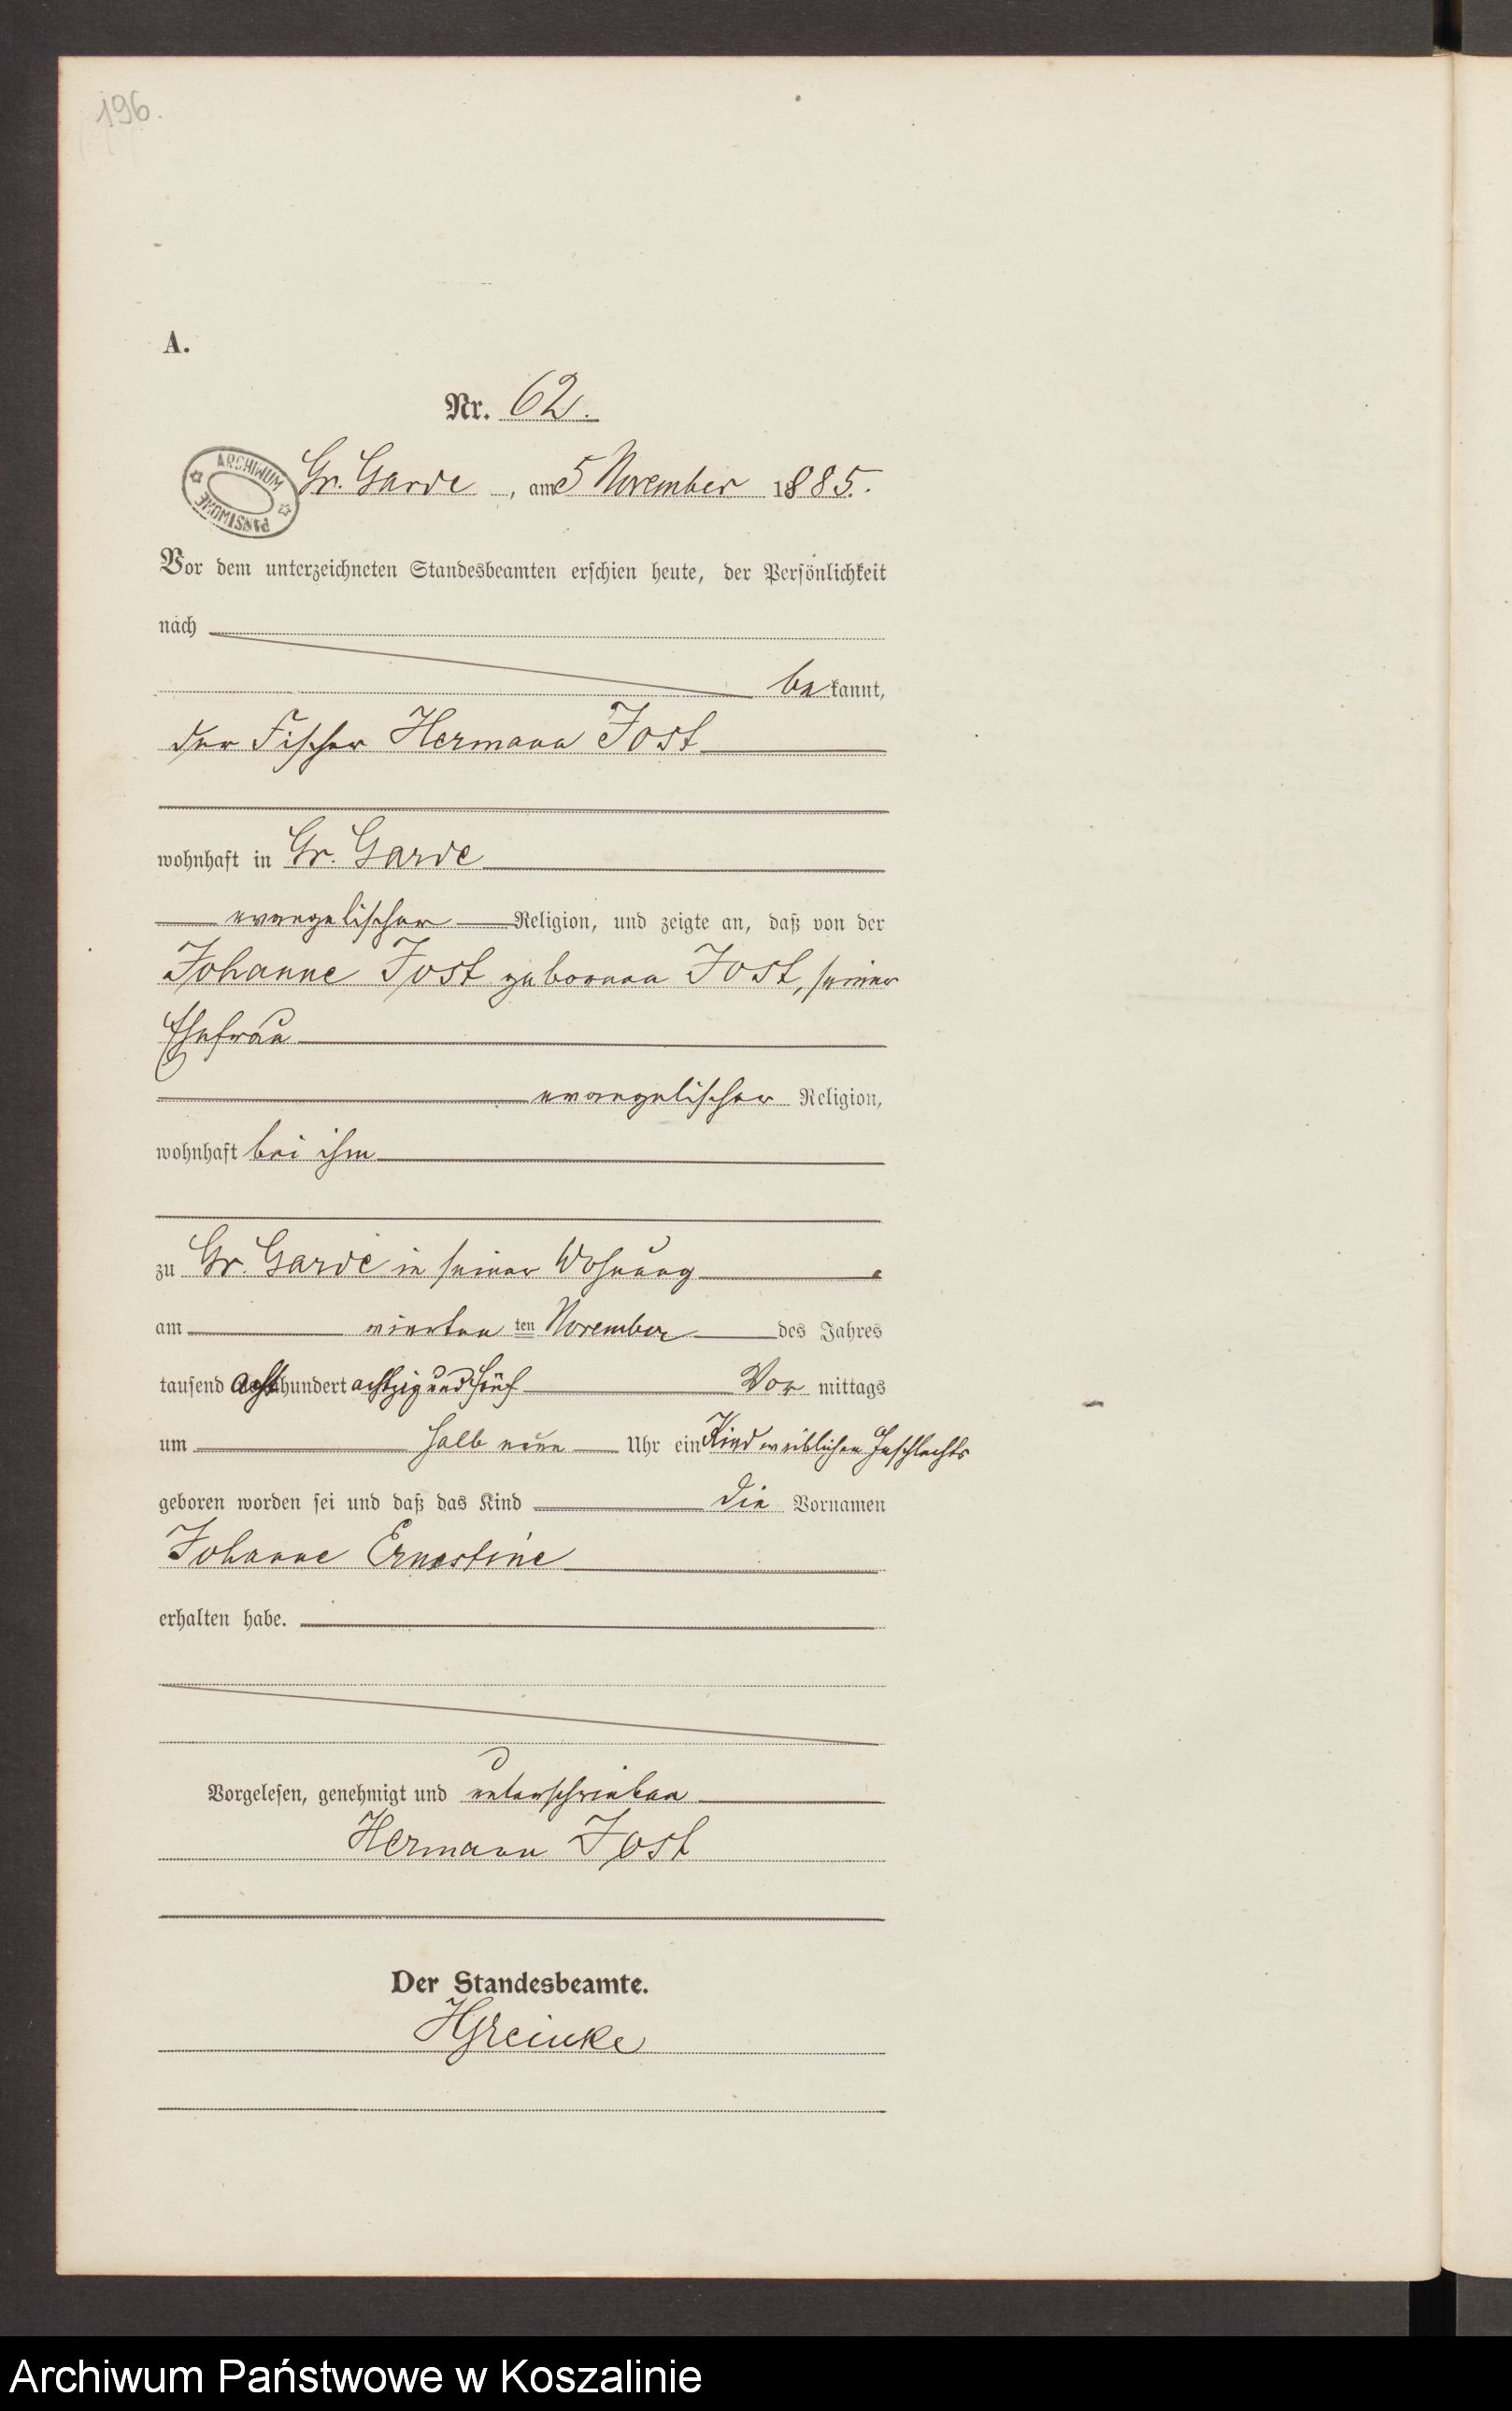 196.
A.
Nr. 62.
ARCHIWUM PAŃSTWOWE
Gr. Garde, am 5 November 1885.
Vor dem unterzeichneten Standesbeamten erschien heute, der Persönlichkeit
nach
bekannt,
der Fischer Hermann Jost
wohnhaft in Gr. Garde
evangelischer Religion, und zeigte an, daß von der
Johanne Jost geborenen Jost, seiner
Ehefrau
evangelischer Religion,
wohnhaft bei ihm
zu Gr. Garde in seiner Wohnung
am vierten ten November des Jahres
tausend achthundert achtzig und fünf Vor mittags
um halb neun Uhr ein Kind weiblichen Geschlechts
geboren worden sei und daß das Kind die Vornamen
Johanne Ernestine
erhalten habe.
Vorgelesen, genehmigt und unterschrieben
Hermann Jost
Der Standesbeamte.
HGreinke
Archiwum Państwowe w Koszalinie